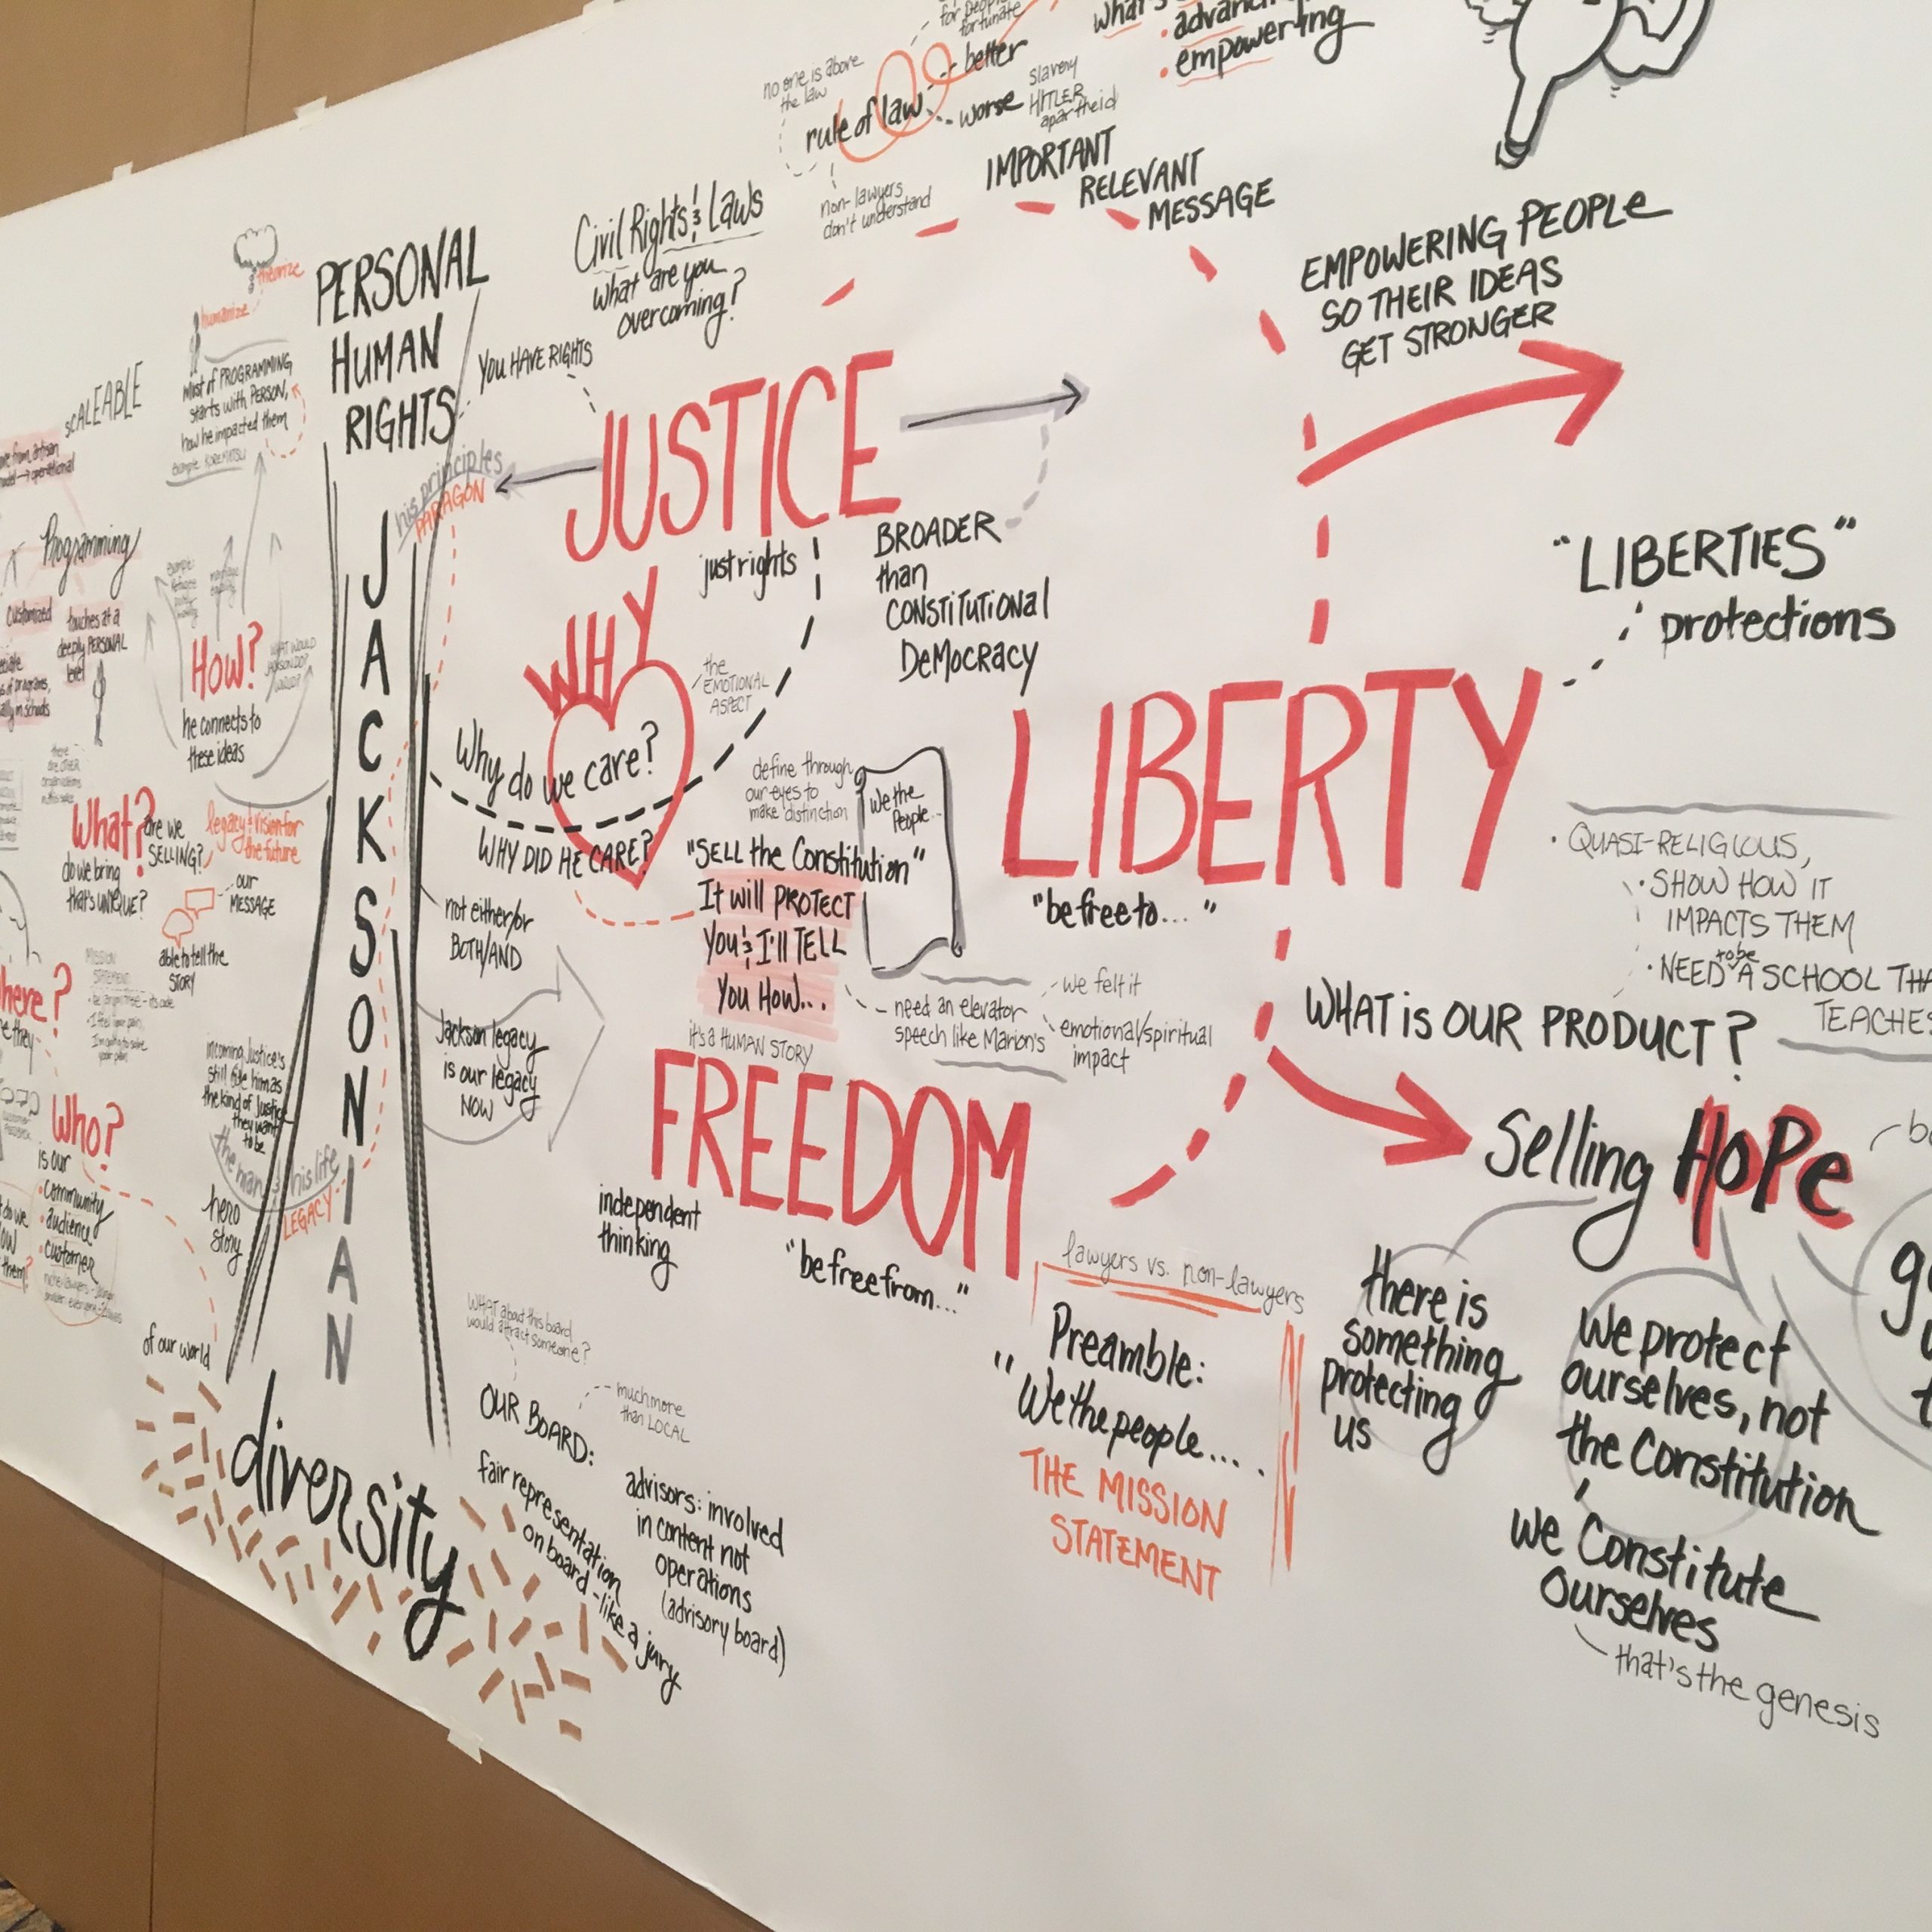 for people
fortunate
better
no one is above
the law
rule of law
worse
slavery
HITLER
apartheid
non-lawyers
don't understand
what's
empowering
IMPORTANT
RELEVANT
MESSAGE
EMPOWERING PEOPLE
SO THEIR IDEAS
GET STRONGER
Civil Rights & Laws
What are you
overcoming?
YOU HAVE RIGHTS
PERSONAL
HUMAN
RIGHTS
theorize
humanize
MOST of PROGRAMMING
starts with PERSON,
how he impacted them
example KOREMATSU
SCALEABLE
Programming
customized
touches at a
deeply PERSONAL
level
How?
he connects to
these ideas
his principles
PARAGON
JACKSONIAN
JUSTICE
just rights
BROADER
than
CONSTITUTIONAL
DEMOCRACY
WHY
the
EMOTIONAL
ASPECT
Why do we care?
WHY DID HE CARE?
not either/or
BOTH/AND
Jackson legacy
is our legacy
NOW
define through
our eyes to
make distinction
We the
People...
"SELL the Constitution"
It will PROTECT
You & I'll TELL
You How...
it's a HUMAN STORY
need an elevator
speech like Marion's
we felt it
emotional/spiritual
impact
LIBERTY
"be free to... "
"LIBERTIES"
protections
• QUASI-RELIGIOUS,
• SHOW HOW IT
IMPACTS THEM
• NEED to be A SCHOOL
TEACHES
WHAT is OUR PRODUCT?
Selling HOPE
there is
something
protecting
us
We protect
ourselves, not
the Constitution
we Constitute
Ourselves
that's the genesis
FREEDOM
independent
thinking
"be free from..."
lawyers vs. non-lawyers
Preamble:
"We the people....
THE MISSION
STATEMENT
What?
do we bring
that's UNIQUE?
are we
SELLING?
legacy & vision for
the future
our
MESSAGE
able to tell the
STORY
MISSION
STATEMENT
incoming Justice's
still cite him as
the kind of Justice
they want
to be
the man & his life
LEGACY
hero
story
Who?
is our
• community
• audience
• customer
of our world
diversity
WHAT about this board
would attract someone?
OUR BOARD:
much more
than LOCAL
fair representation
on board - like a jury
advisors: involved
in content not
operations
(advisory board)